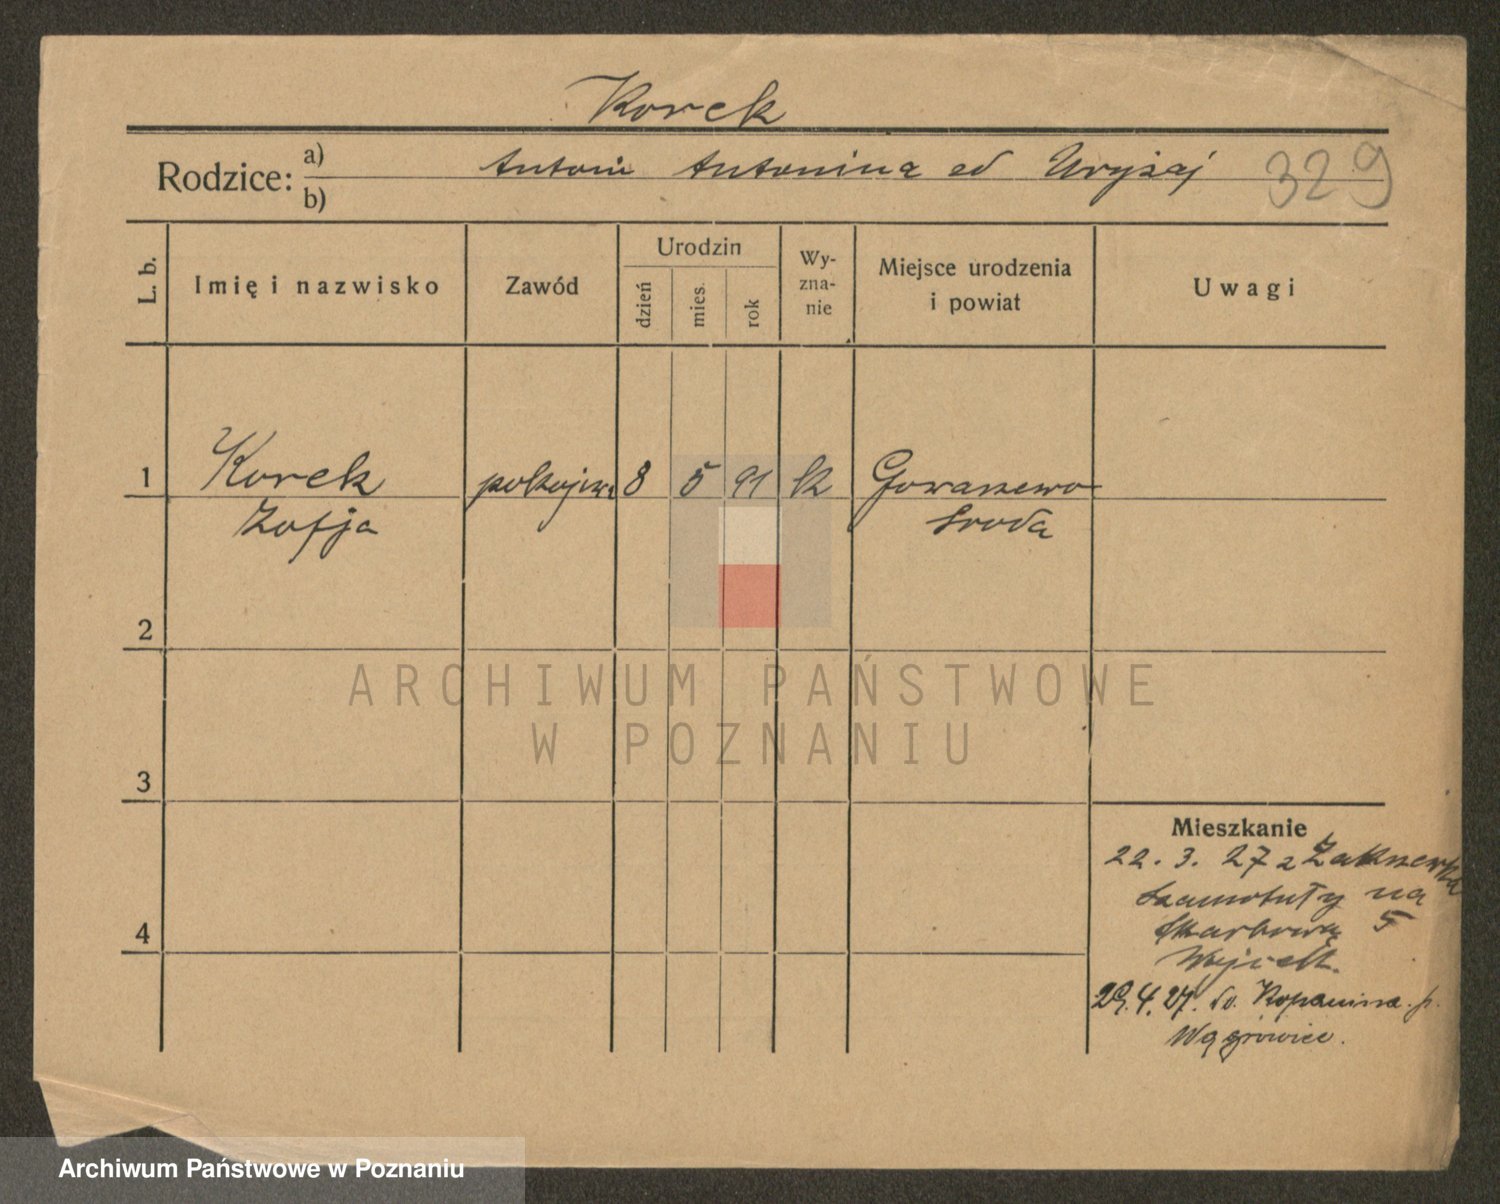 Korek
Rodzice: a) b) Antoni Antonina ed Uryzaj 329
L. b. Imię i nazwisko Zawód Urodzin dzień mies. rok Wy-zna-nie Miejsce urodzenia i powiat Uwagi
1 Korek pokojowa 8 5 91 k Gowarzewo
Zofja Środa
2
ARCHIWUM PAŃSTWOWE
W POZNANIU
3
Mieszkanie
22. 3. 27 z
Szamotuły na
4 Skarbową 5
Wojciech.
29. 4. 27. do. Kopanina. p.
Wągrowiec.
Archiwum Państwowe w Poznaniu